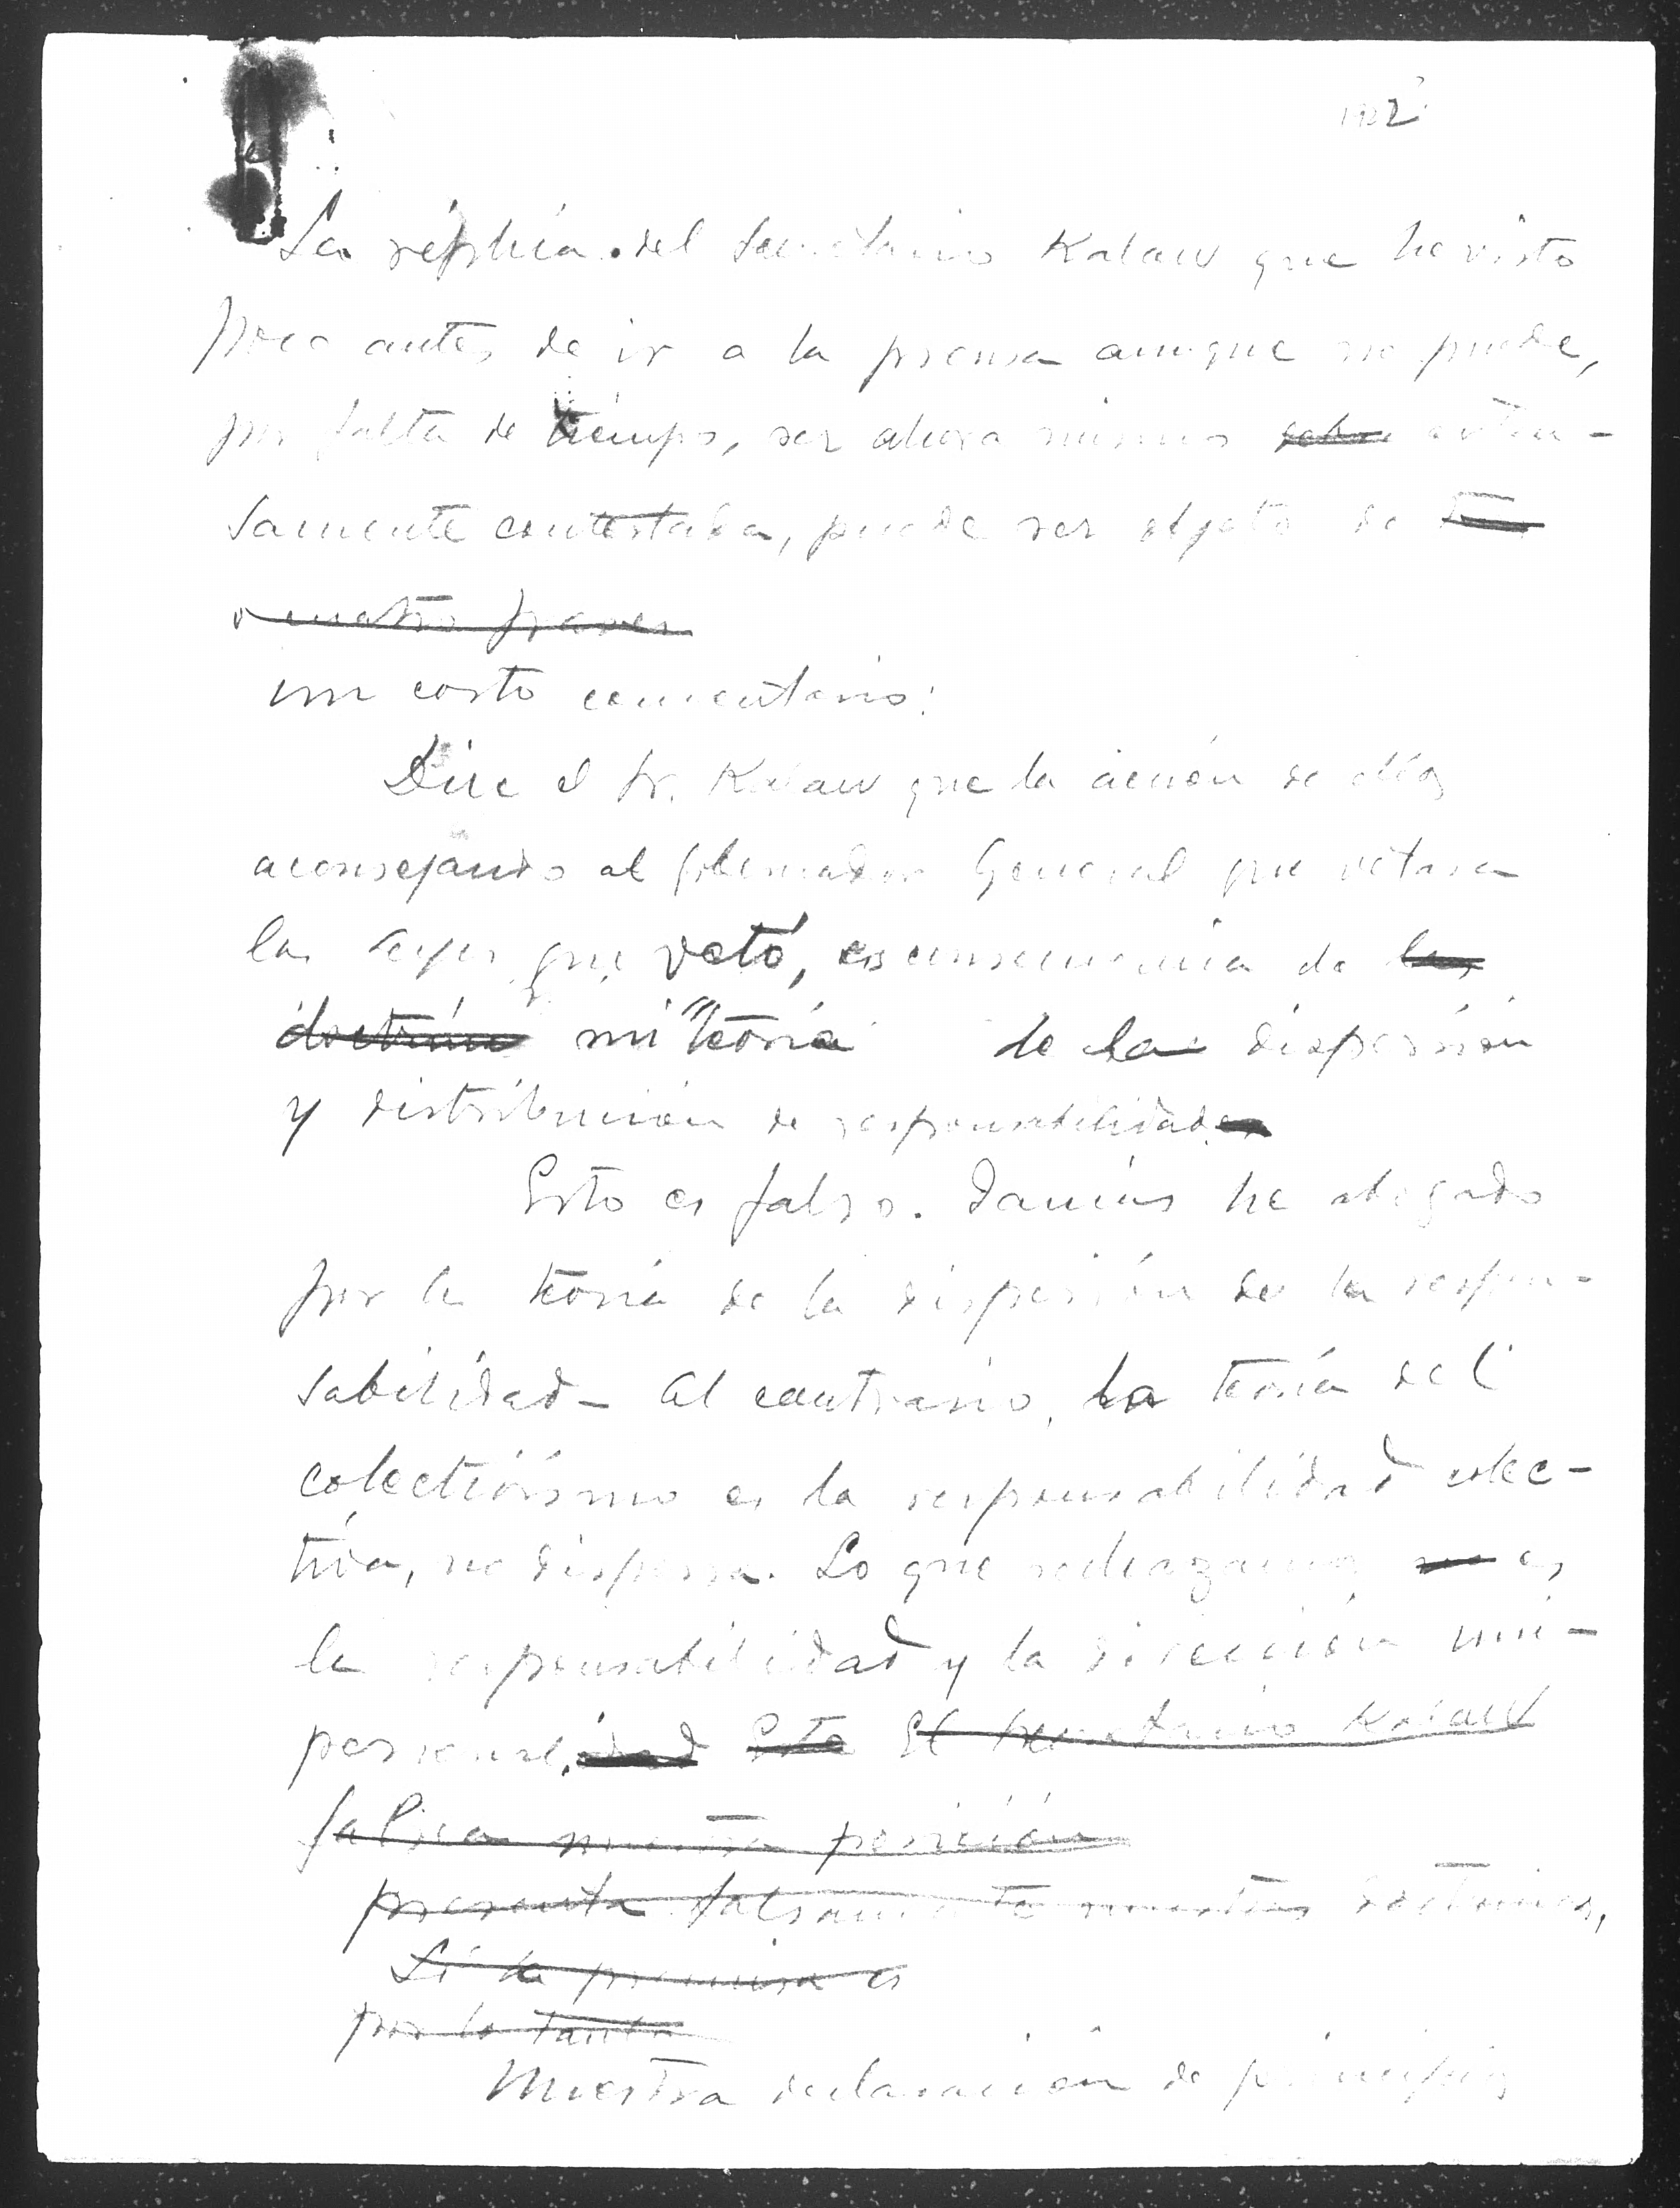 1922
La réplica del Secretario Kalaw que he visto
poco antes de ir a la prensa aunque no puede,
por falta de tiempo, ser ahora mismo exten-
samente contestada, puede ser objeto de tres
o cuatro frases
un corto comentario:
Dice el Sr. Kalaw que la acción de ellos
aconsejando al Gobernador General que vetara
las leyes que vetó, es consecuencia de las
doctrina mi "teoría de la dispersión
y distribución de responsabilidades
Esto es falso. Jamás he abogado
por la teoría de la dispersión de la respon-
sabilidad - Al contrario, la teoría del
colectivismo es la responsabilidad colec-
tiva, no dispersa. Lo que rechazamos no es
la responsabilidad y la dirección uni-
personal. idad Esta El Secretario Kalaw
falsea nuestra posición
presenta falsamente nuestras doctrinas,
Si la premisa es
por lo tanto
Nuestra declaración de principios